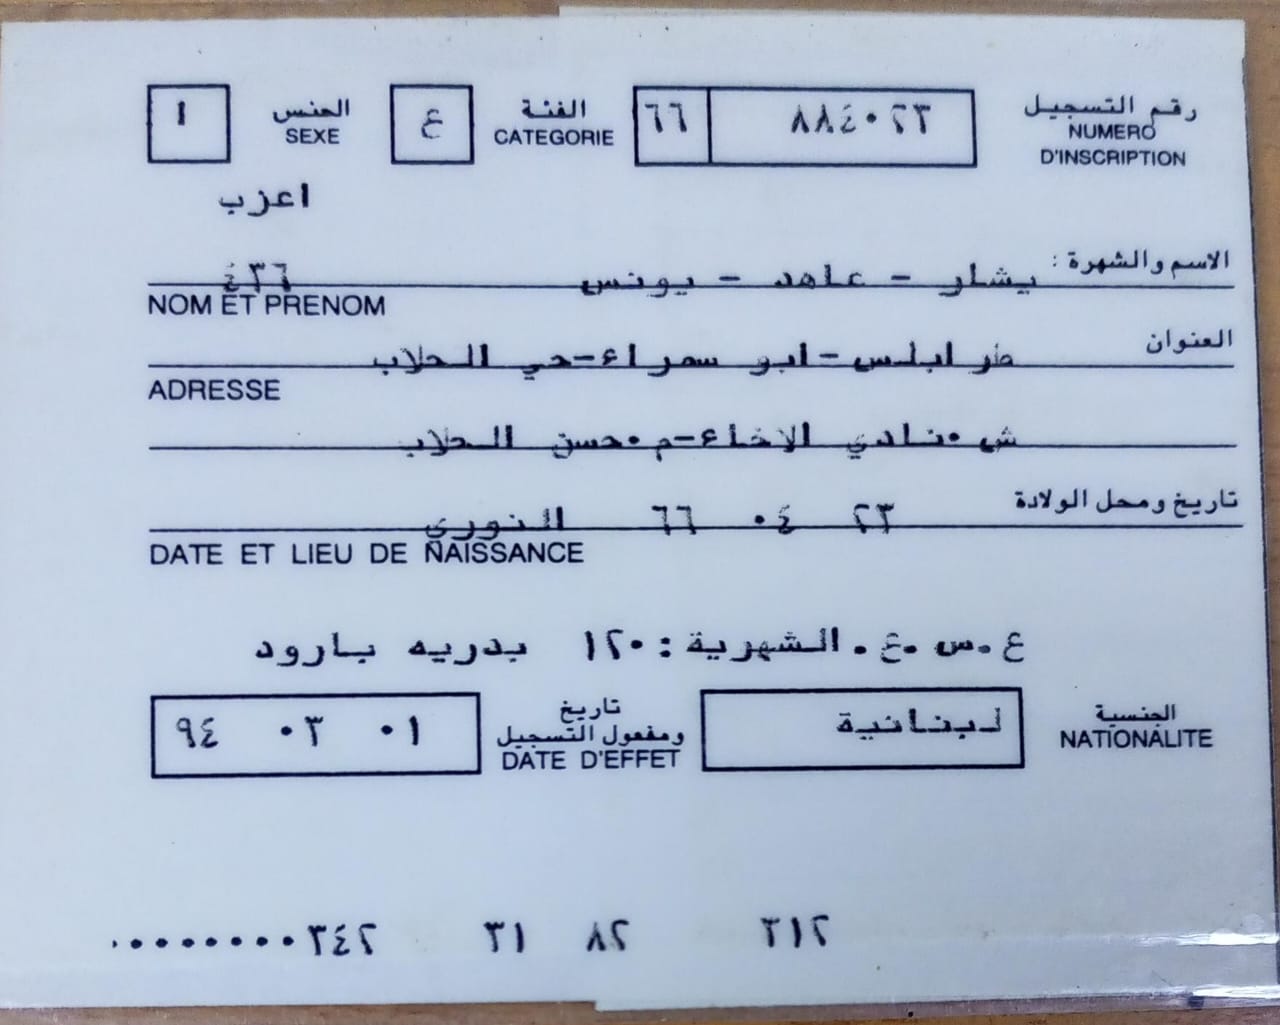 رقم التسجيل ٨٨٤٠٢٣ ٦٦ الفئة ع الجنس ١
NUMERO D'INSCRIPTION CATEGORIE SEXE
اعزب
الاسم والشهرة : يشار - عاهد - يونس ٤٣٦
NOM ET PRENOM
العنوان طرابلس-ابو سمراء-حي الحلاب
ADRESSE
ش.نادي الاخاء-م.حسن الحلاب
تاريخ ومحل الولادة ٢٣ ٠٤ ٦٦ النوري
DATE ET LIEU DE NAISSANCE
ع.س.ع. الشهرية : ١٢٠ بدريه بارود
الجنسية لبنانية تاريخ ومفعول التسجيل ٠١ ٠٣ ٩٤
NATIONALITE DATE D'EFFET
٢١٢ ٨٢ ٣١ ٣٤٢ ٠٠٠٠٠٠٠٠